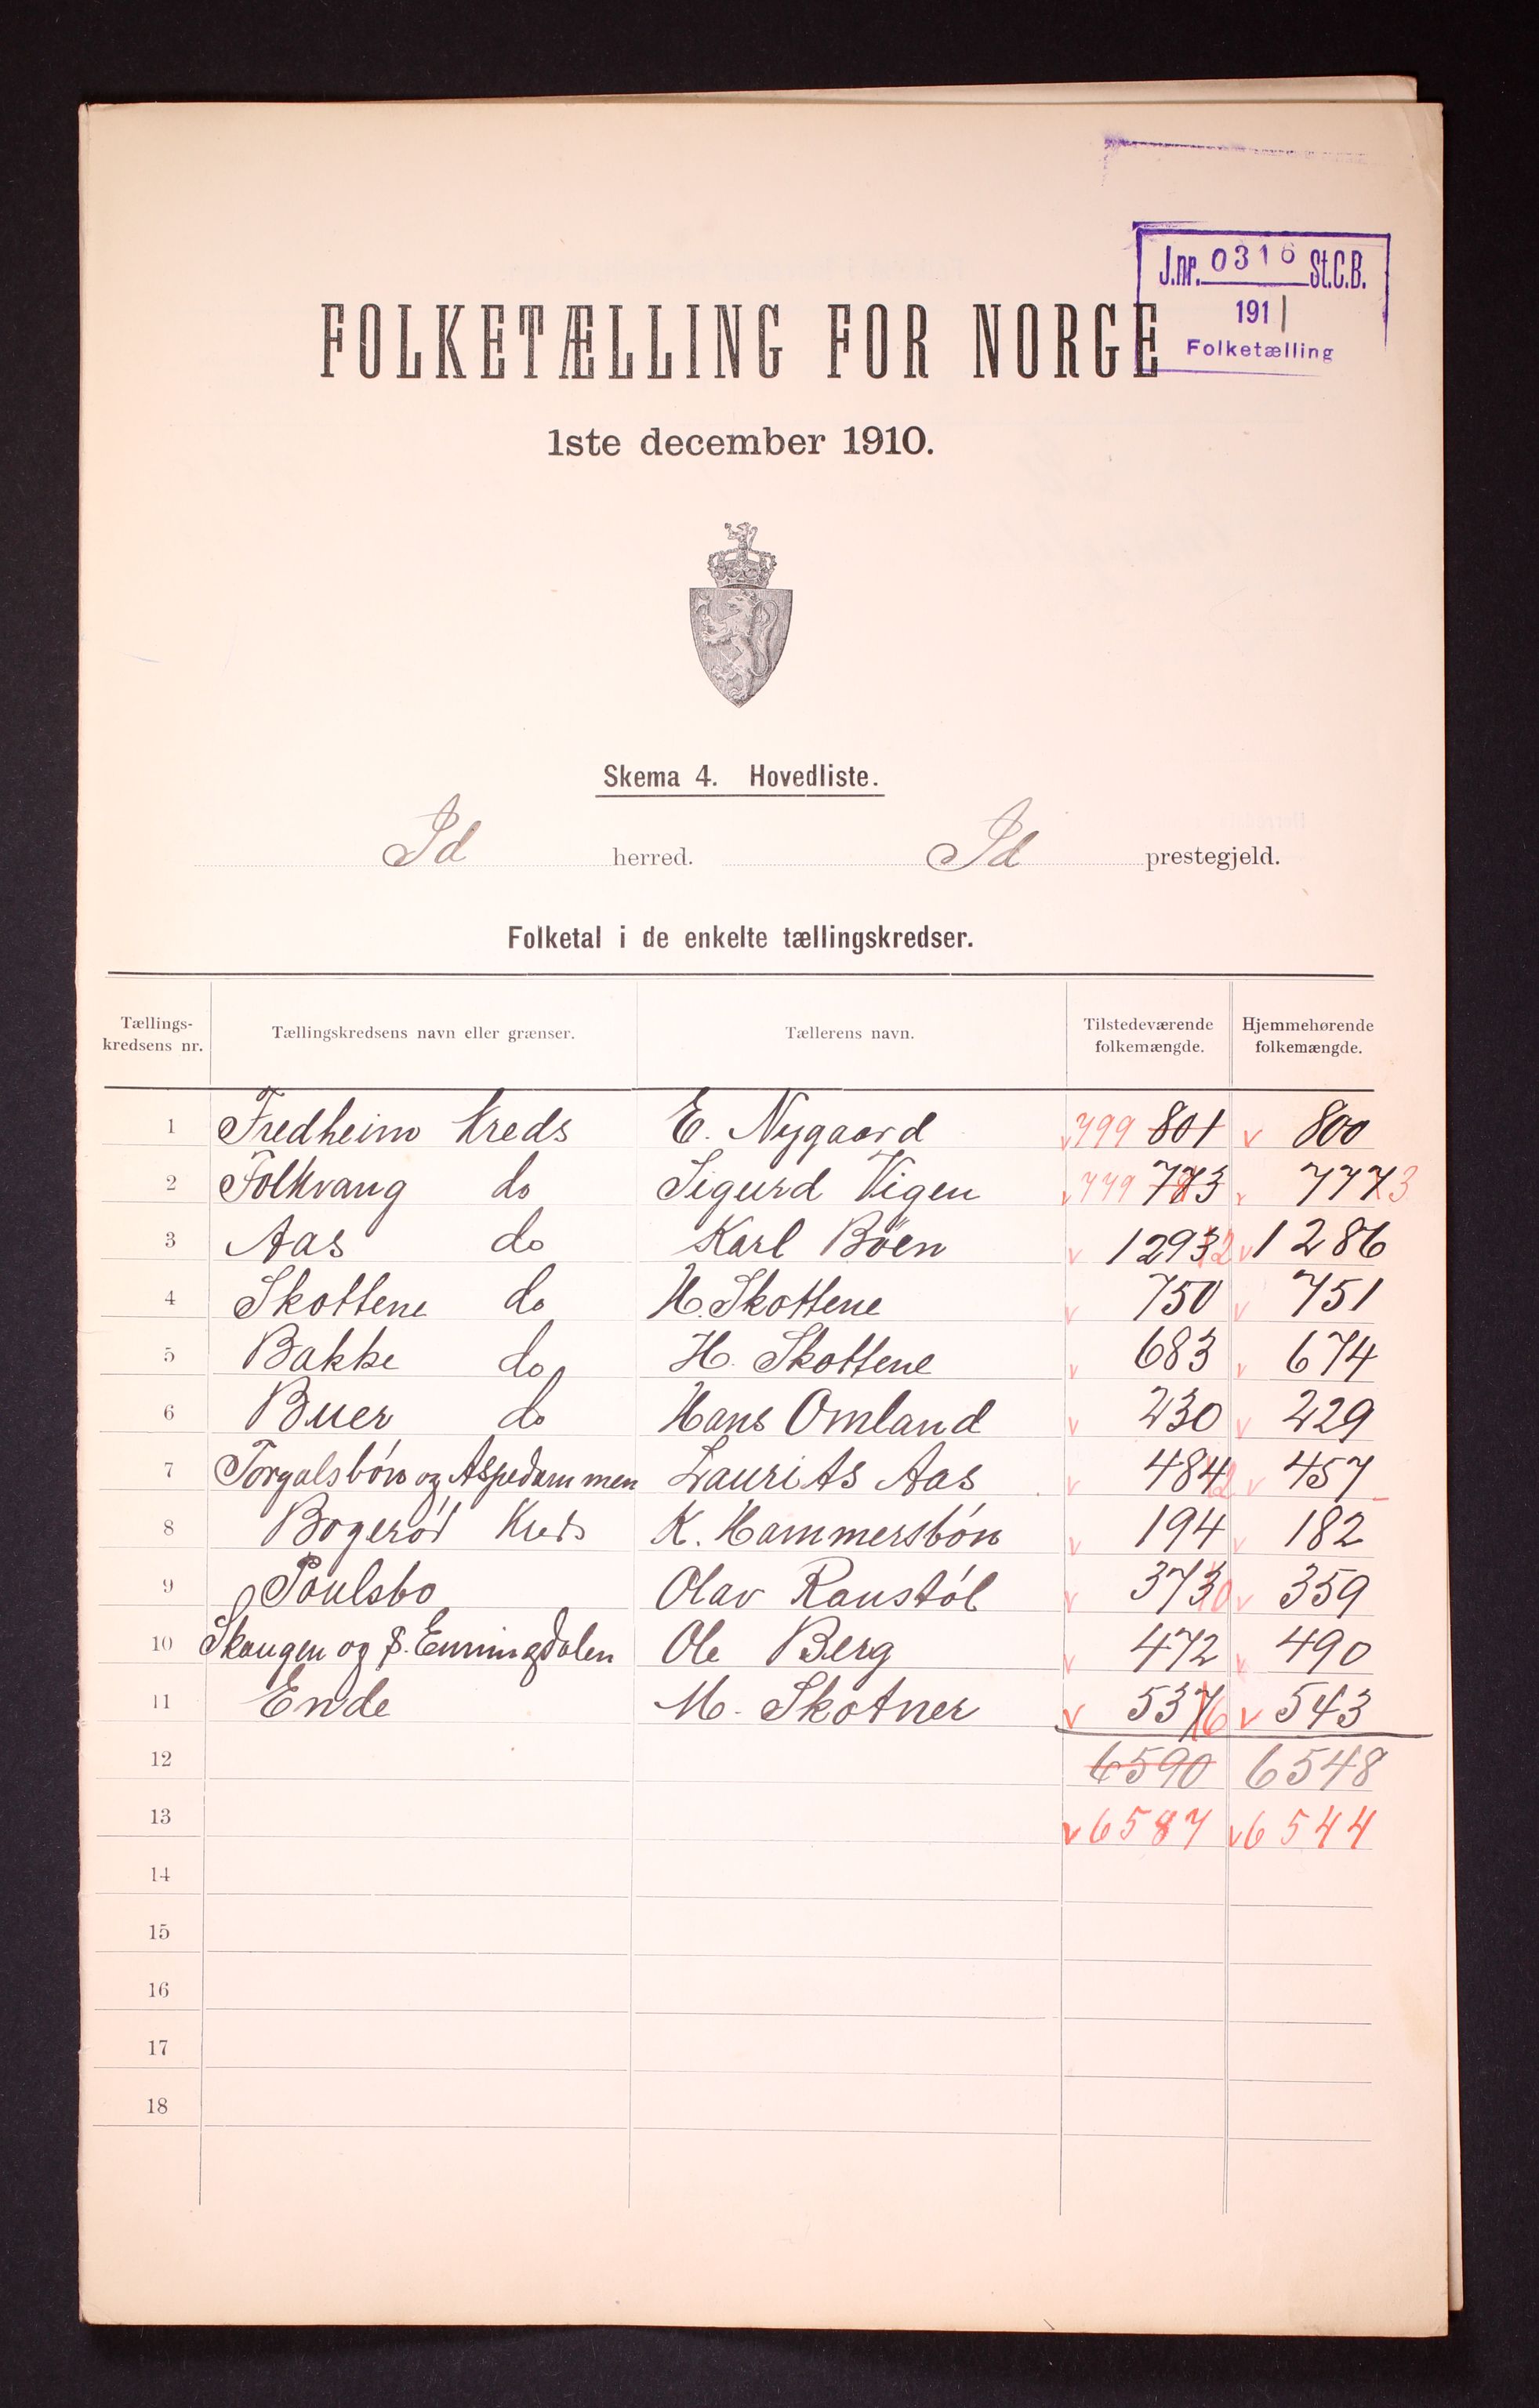 J.nr. 0316 St.C.B.
1911
Folketælling
FOLKETÆLLING FOR NORGE
1ste december 1910.
Skema 4. Hovedliste.
Id herred. Id prestegjeld.
Folketal i de enkelte tællingskredser.
Tællings-kredsens nr. Tællingskredsens navn eller grænser. Tællerens navn. Tilstedeværende folkemængde. Hjemmehørende folkemængde.
1 Fredheim Kreds E. Nygaard v 799 801 v 800
2 Folkvang do Sigurd Vigen v 779 v 777 3
3 Aas do Karl Böen v 1293 2 v 1286
4 Skottene do H. Skottene v 750 v 751
5 Bakke do H. Skottene v 683 v 674
6 Buer do Hans Omland v 230 v 229
7 Torgalsbón og Aspedammen Laurits Aas v 484 2 v 457
8 Bogeród Kreds K. Hammersbón v 194 v 182
9 Poulsbo Olav Raustól v 373 0 v 359
10 Skaugen og Enningdalen Ole Berg v 472 v 490
11 Ende M. Skotner v 537 6 v 543
12 6590 6548
13 v 6587 v 6544
14
15
16
17
18